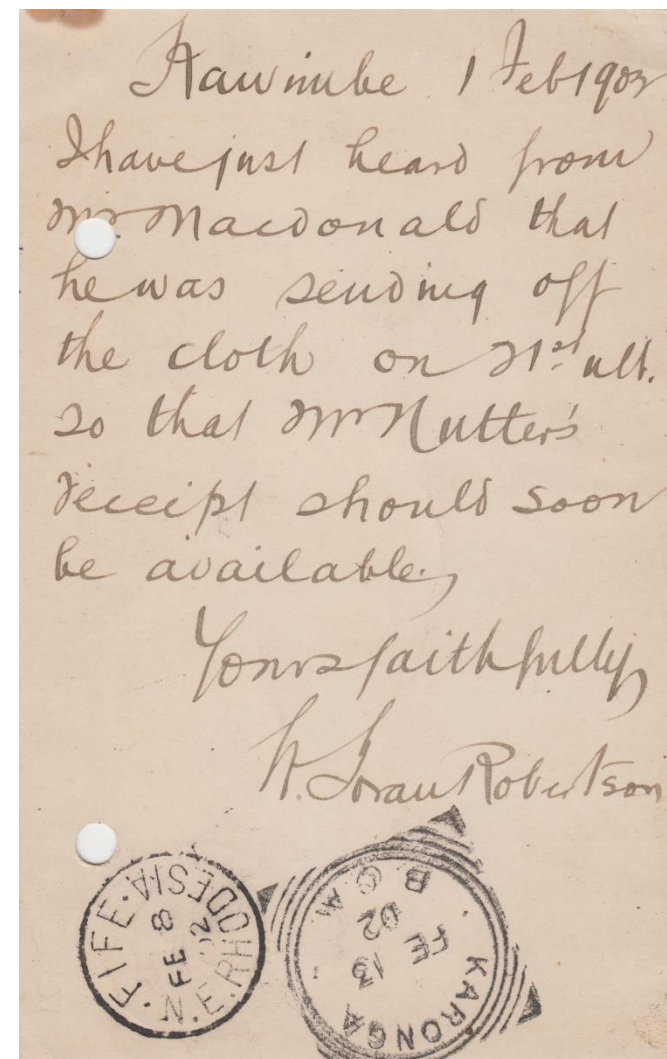 Kawimbe 1 Feb 1902
I have just heard from
Mr. Macdonald that
he was sending off
the cloth on 21st ult.
so that Mr Nutter's
receipt should soon
be available.
Yours faithfully
Robertson
FIFE · N.E. RHODESIA
FE 8
02
KARONGA
B.C.A
FE 13
02